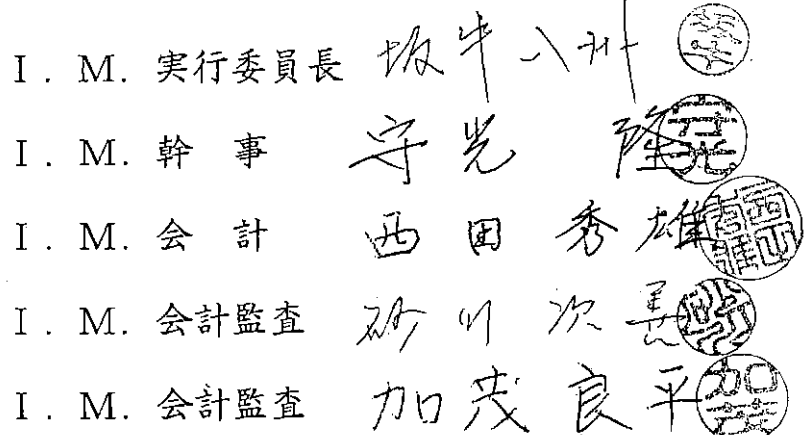 I. M. 実行委員長 坂牛八州
I. M. 幹 事 守光 隆
I. M. 会 計 西田秀雄
I. M. 会計監査 砂川次
I. M. 会計監査 加茂良平